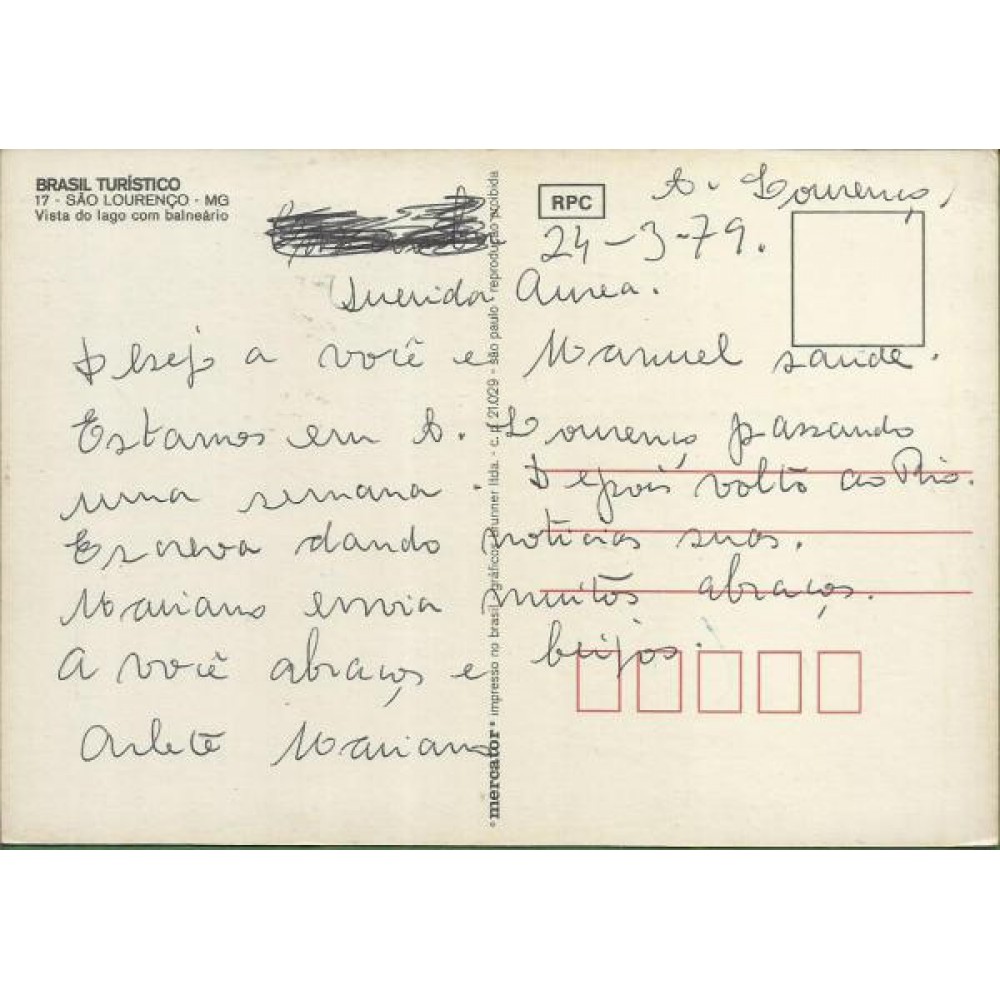 BRASIL TURÍSTICO
17 - SÃO LOURENÇO - MG
Vista do lago com balneário
RPC
S. Lourenço,
24-3-79.
Querida Aurea.
Desejo a você e Manuel saude.
Estamos em S. Lourenço passando
uma semana. Depois volto ao Rio.
Escreva dando noticias suas.
Mariano envia muitos abraços.
A você abraços e beijos.
Arlete Mariano
mercator impresso no brasil - gráficos brunner ltda. - c. p. 21.029 - são paulo - reprodução proibida